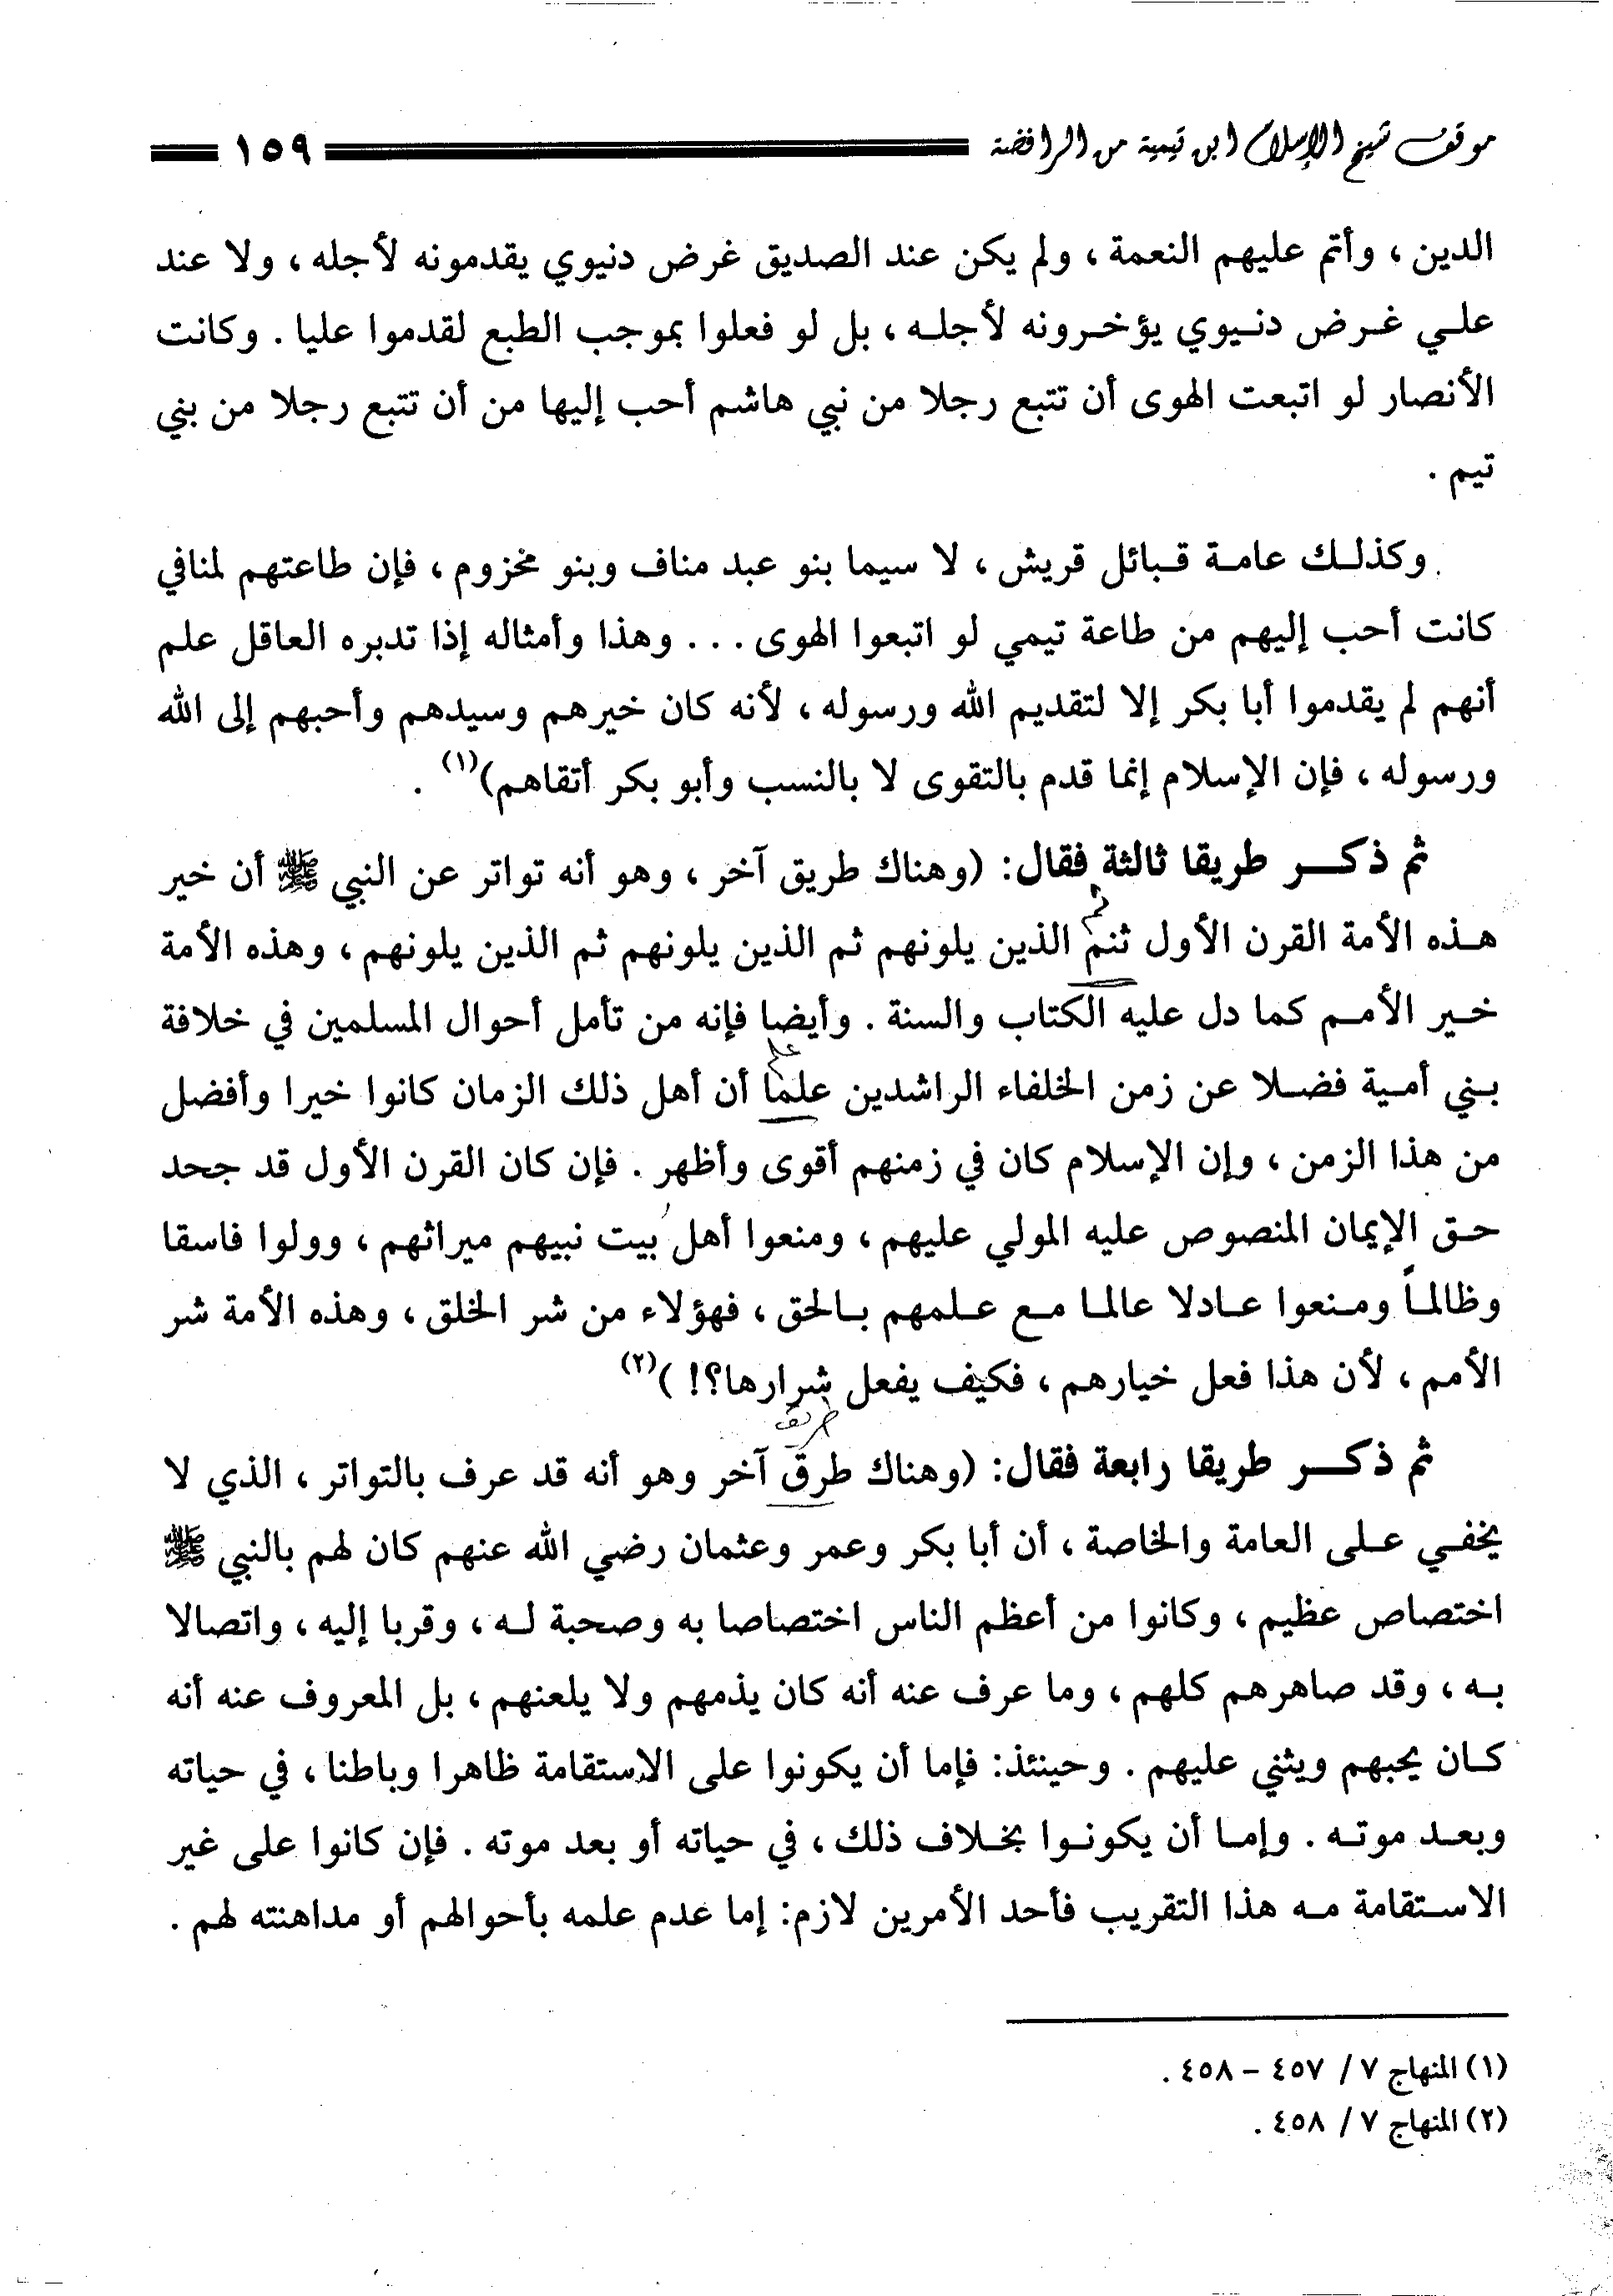 موقف شيخ الإسلام ابن تيمية من الرافضة ١٥٩
الدين ، وأتم عليهم النعمة ، ولم يكن عند الصديق غرض دنيوي يقدمونه لأجله ، ولا عند
علي غرض دنيوي يؤخرونه لأجله ، بل لو فعلوا بموجب الطبع لقدموا عليا . وكانت
الأنصار لو اتبعت الهوى أن تتبع رجلا من نبي هاشم أحب إليها من أن تتبع رجلا من بني
تيم .
وكذلك عامة قبائل قريش ، لا سيما بنو عبد مناف وبنو مخزوم ، فإن طاعتهم لمنافي
كانت أحب إليهم من طاعة تيمي لو اتبعوا الهوى ... وهذا وأمثاله إذا تدبره العاقل علم
أنهم لم يقدموا أبا بكر إلا لتقديم الله ورسوله ، لأنه كان خيرهم وسيدهم وأحبهم إلى الله
ورسوله ، فإن الإسلام إنما قدم بالتقوى لا بالنسب وأبو بكر أتقاهم)(١) .
ثم ذكر طريقا ثالثة فقال: (وهناك طريق آخر ، وهو أنه تواتر عن النبي ﷺ أن خير
هذه الأمة القرن الأول ثنم الذين يلونهم ثم الذين يلونهم ثم الذين يلونهم ، وهذه الأمة
خير الأمم كما دل عليه الكتاب والسنة . وأيضا فإنه من تأمل أحوال المسلمين في خلافة
علم
بني أمية فضلا عن زمن الخلفاء الراشدين علما أن أهل ذلك الزمان كانوا خيرا وأفضل
من هذا الزمن ، وإن الإسلام كان في زمنهم أقوى وأظهر . فإن كان القرن الأول قد جحد
حق الإيمان المنصوص عليه المولي عليهم ، ومنعوا أهل بيت نبيهم ميراثهم ، وولوا فاسقا
وظالماً ومنعوا عادلا عالما مع علمهم بالحق ، فهؤلاء من شر الخلق ، وهذه الأمة شر
الأمم ، لأن هذا فعل خيارهم ، فكيف يفعل شرارها؟! )(٢)
طريق
ثم ذكر طريقا رابعة فقال: (وهناك طرق آخر وهو أنه قد عرف بالتواتر ، الذي لا
يخفي على العامة والخاصة ، أن أبا بكر وعمر وعثمان رضي الله عنهم كان لهم بالنبي ﷺ
اختصاص عظيم ، وكانوا من أعظم الناس اختصاصا به وصحبة له ، وقربا إليه ، واتصالا
به ، وقد صاهرهم كلهم ، وما عرف عنه أنه كان يذمهم ولا يلعنهم ، بل المعروف عنه أنه
كان يحبهم ويثني عليهم . وحينئذ: فإما أن يكونوا على الاستقامة ظاهرا وباطنا ، في حياته
وبعد موته . وإما أن يكونوا بخلاف ذلك ، في حياته أو بعد موته . فإن كانوا على غير
الاستقامة مه هذا التقريب فأحد الأمرين لازم: إما عدم علمه بأحوالهم أو مداهنته لهم .
(١) المنهاج ٧ / ٤٥٧ – ٤٥٨ .
(٢) المنهاج ٧ / ٤٥٨ .